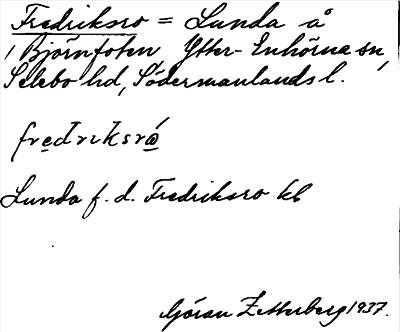 Fredriksro = Lunda å
/ Björnfoten Ytter-Enhörna sn,
Selebo hd, Södermanlands l.
fredriksró
Lunda f. d. Fredriksro kb
Göran Zetterberg 1937.